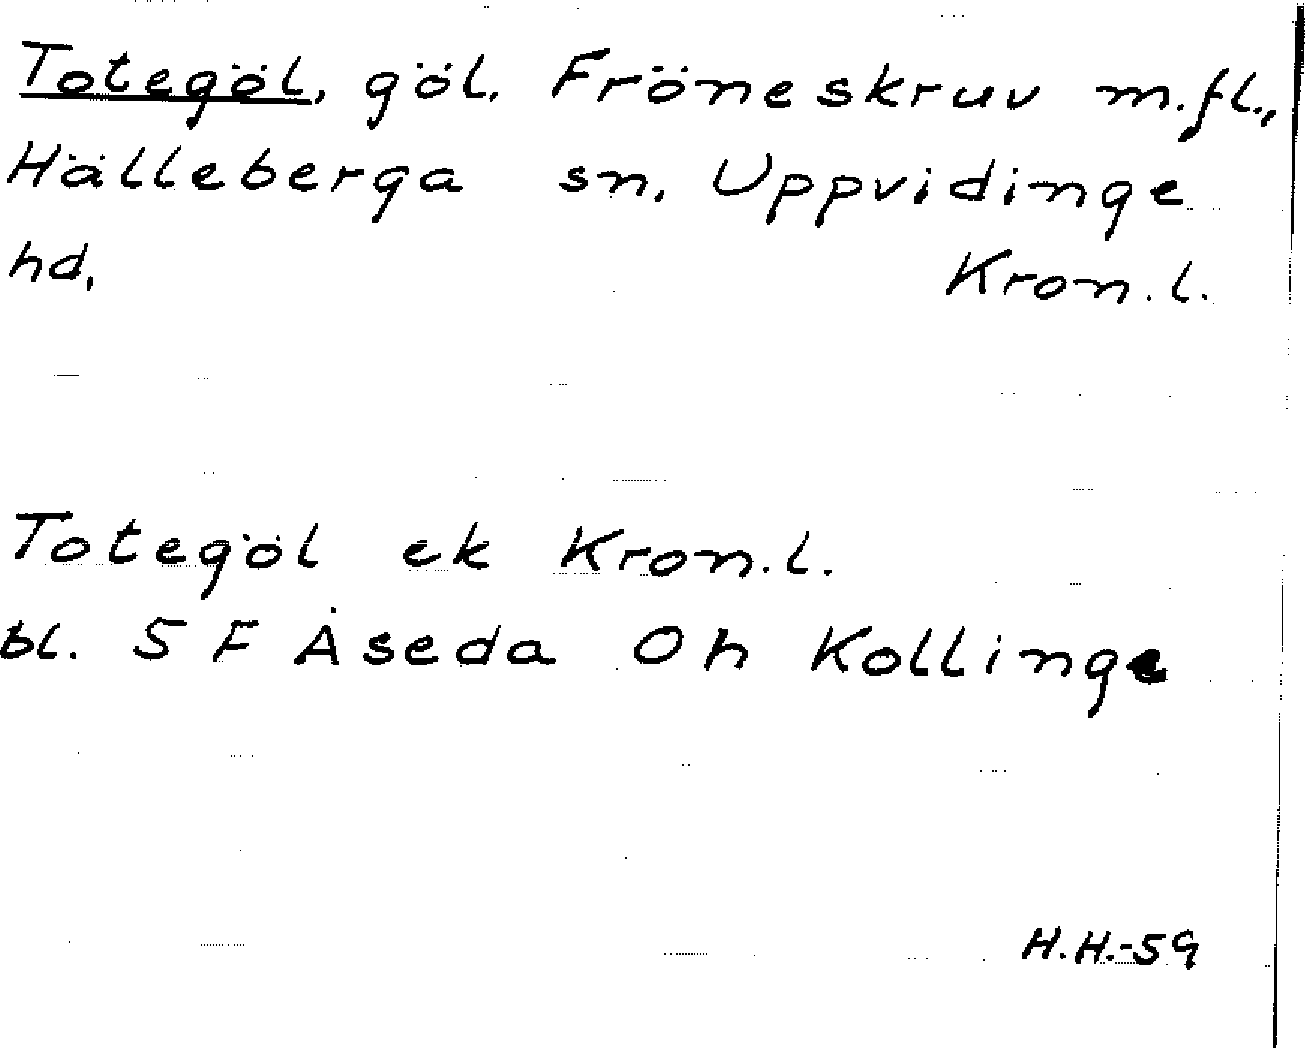 Totegöl, göl. Fröneskruv m.fl.,
Hälleberga sn. Uppvidinge
hd. Kron.l.
Totegöl ek Kron.l.
bl. 5 F Åseda Oh Kollinge
H.H.-59